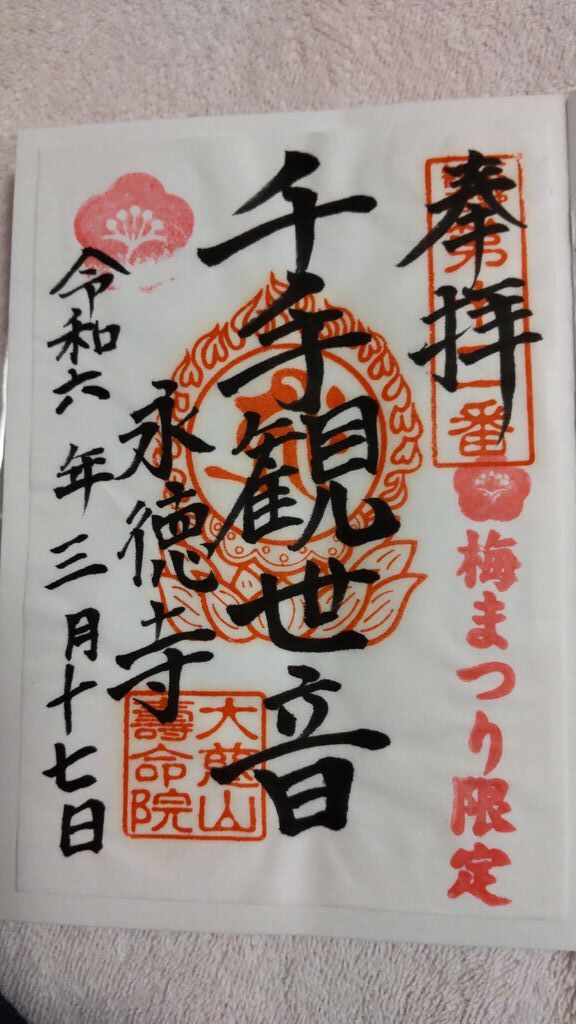 奉拝
梅まつり限定
千手観世音
永徳寺
大慈山
壽命院
令和六年三月十七日